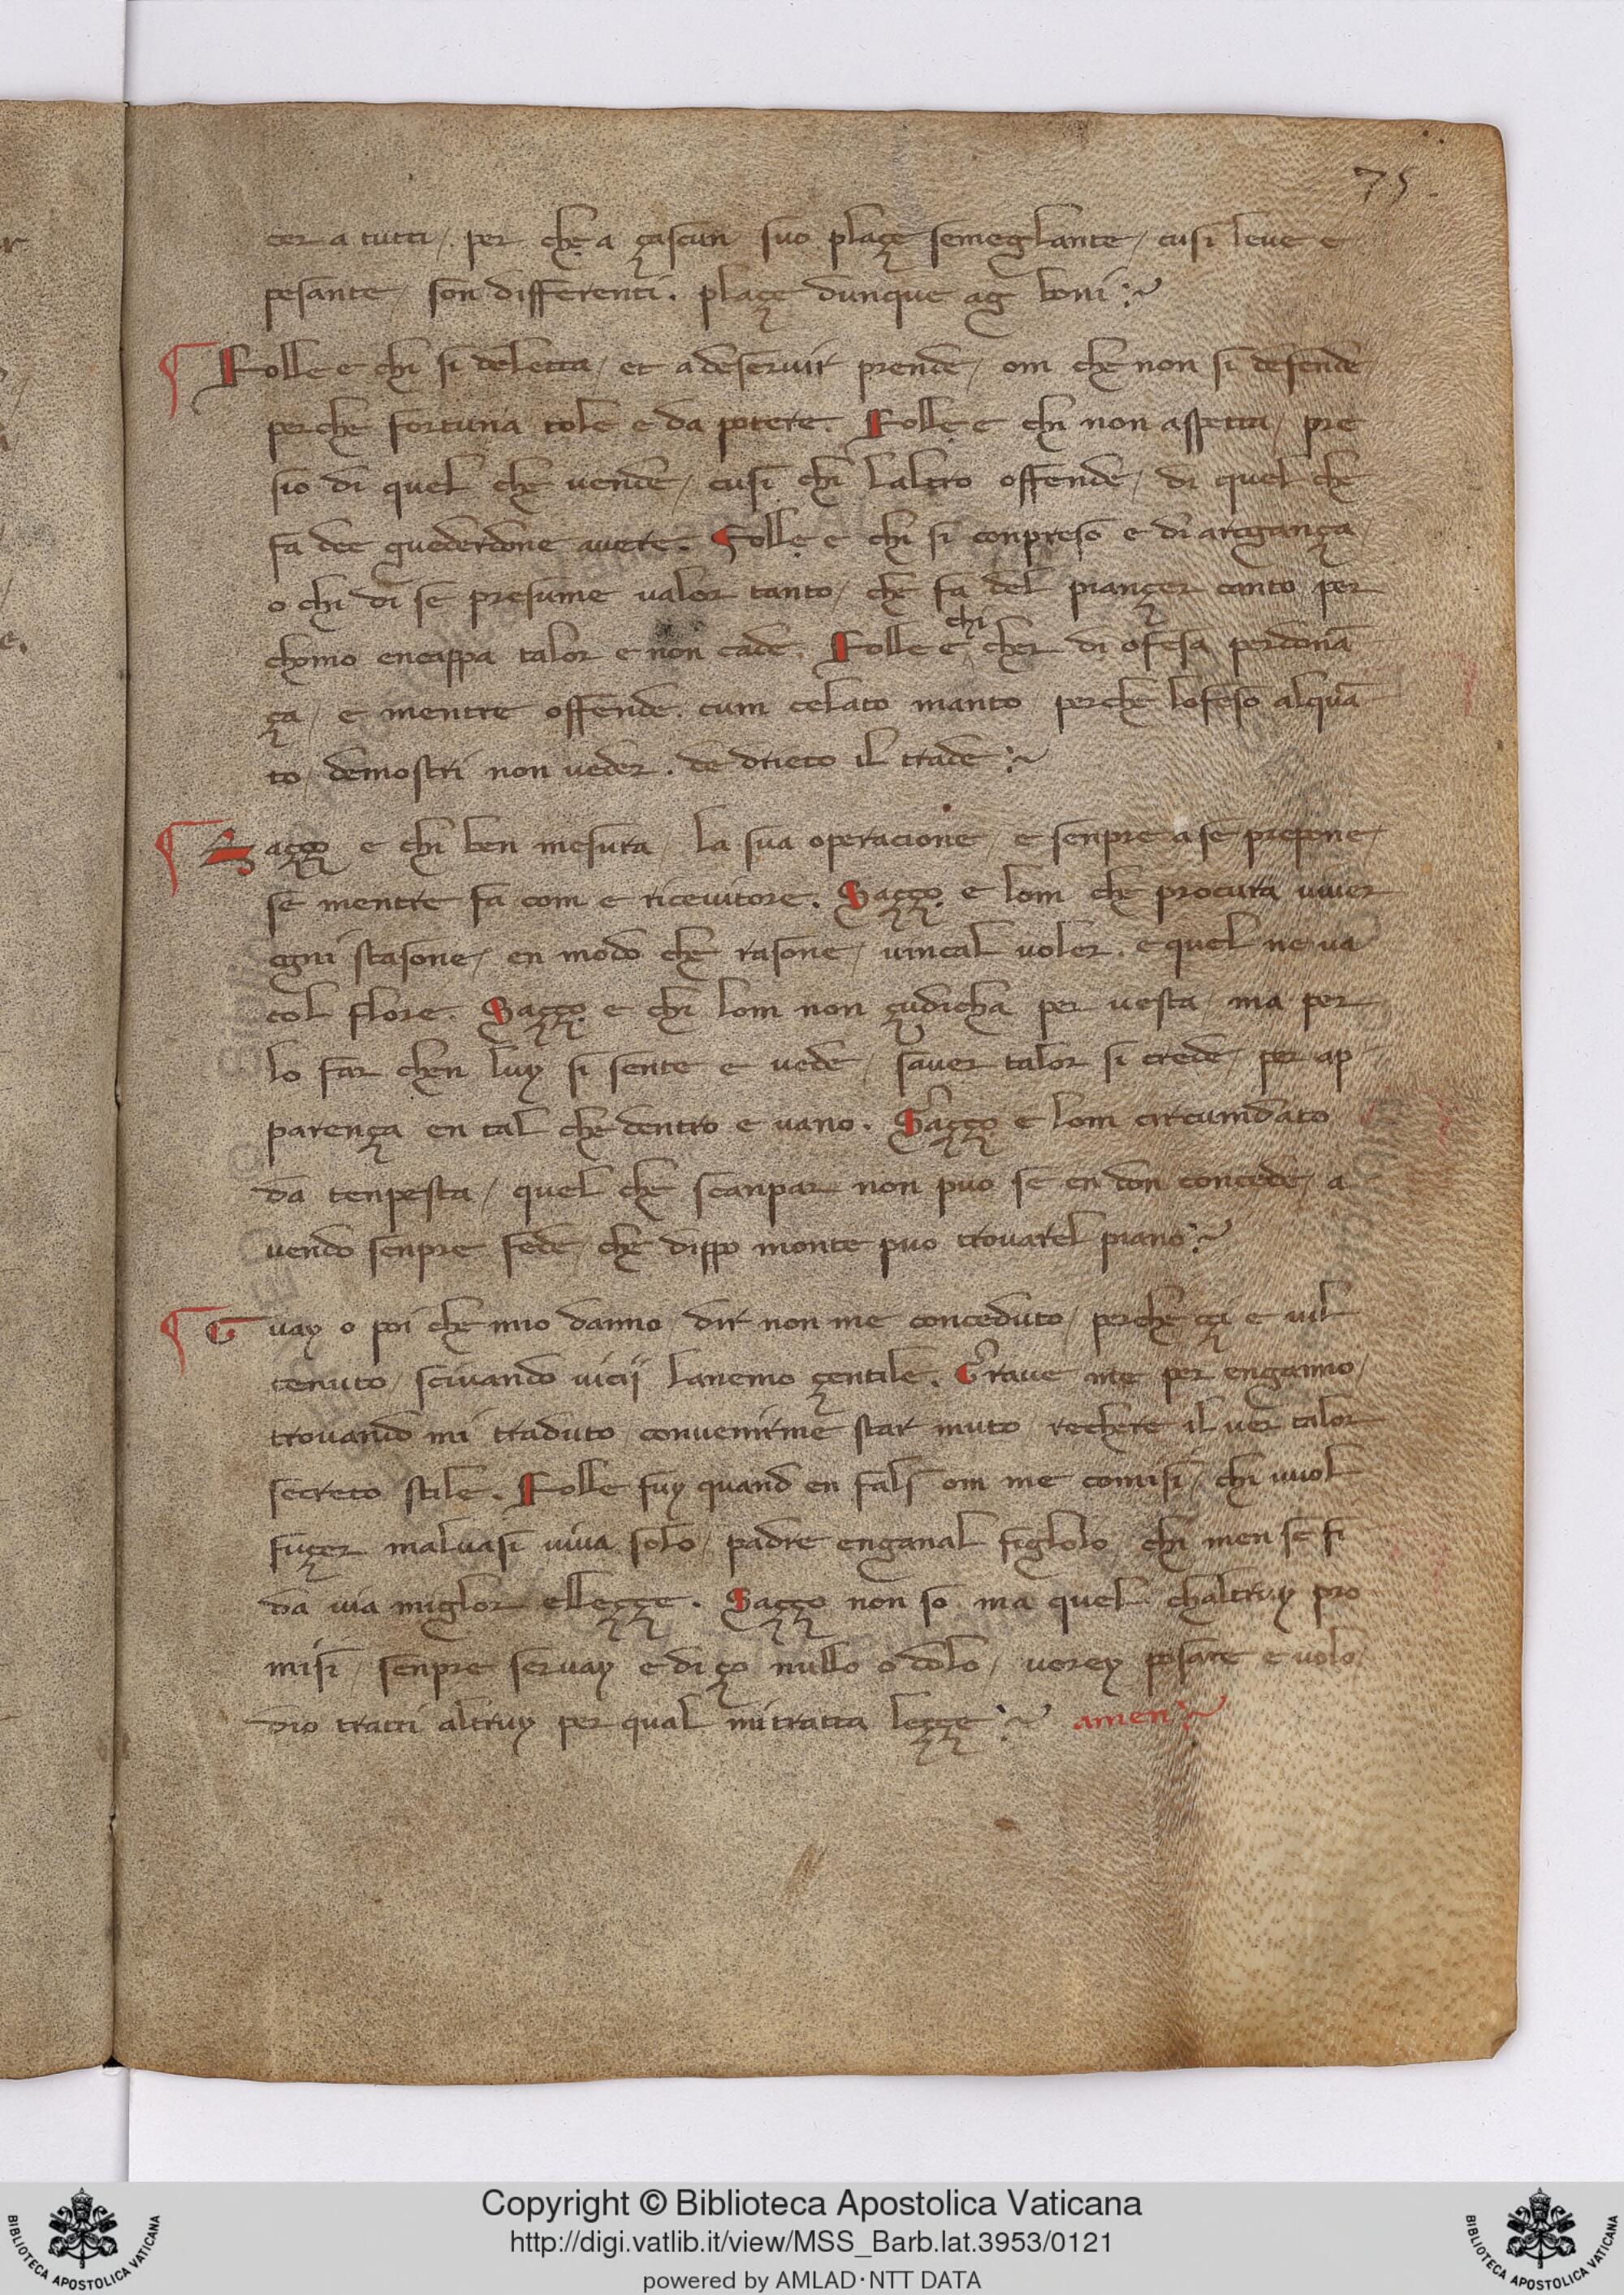 75.
cer a tutti / per che a çascun suo plaçe semeglante / cusi leue e
pesante / son differenti . plaçe dunque ag boni :~
¶ Folle e chi si deletta / et a deseruir prende / om che non si defende
perche fortuna tole e da potere . Folle e chi non aspetta / pre
sio di quel che uende / cusi chi laltro offende / di quel che
fa dee guederdone auere . Folle e chi si conpreso e di arogança /
o chi di se presume ualor tanto / che fa del piançer canto per
chomo encappa talor e non cade . Folle e chi cher di ofesa perdonā
ça / e mentre offende . cum celato manto perche lofeso alquā
to / demostri non ueder . de drieto il trade :~
¶ Saçço e chi ben mesura / la sua operacione / e senpre a se prepone /
se mentre fa com e riceuitore . Saçço e lom che procura uiuer
ogni stasone / en modo che rasone / uincal uoler . e quel ne ua
col flore . Saçço e chi lom non çudicha per uesta / ma per
lo far chen luy si sente e uede / sauer talor si crede / per ap
parença en tal che dentro e uano . Saçço e lom circumdato
da tenpesta / quel che scanpar non puo se en don concede / a
uendo senpre fede / che dippo monte puo trouarel piano :~
¶ Guay o poi che mio danno / dir non me conceduto / perche çi e uil
tenuto / sciuando uicij lanemo çentile . Graue me per enganno /
trouando mi traduto / conuenirme star muto / rechere il uer talor
secreto stile . Folle fuy quand en fals om me comisi / chi uuol
fuçer maluasi uiua solo / padre enganal figlolo / chi men se fi
da uia miglor elleççe . Saçço non so ma quel chaltruy pro
misi / senpre seruay e di ço nullo o dolo / uorey posare e uolo /
dio tratti altruy per qual mi tratta leççe :~ amen :~
Copyright © Biblioteca Apostolica Vaticana
http://digi.vatlib.it/view/MSS_Barb.lat.3953/0121
powered by AMLAD·NTT DATA
BIBLIOTECA APOSTOLICA VATICANA
BIBLIOTECA APOSTOLICA VATICANA